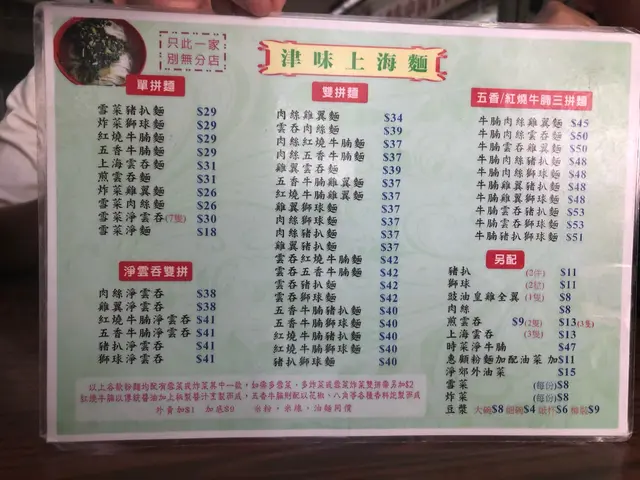 只此一家
別無分店
津味上海麵
單拼麵
雪菜豬扒麵 $29
炸菜獅球麵 $29
紅燒牛腩麵 $29
五香牛腩麵 $29
上海雲吞麵 $31
煎雲吞麵 $31
炸菜雞翼麵 $26
雪菜肉絲麵 $26
雪菜淨雲吞(7隻) $30
雪菜淨麵 $18
淨雲吞雙拼
肉絲淨雲吞 $38
雞翼淨雲吞 $38
紅燒牛腩淨雲吞 $41
五香牛腩淨雲吞 $41
豬扒淨雲吞 $41
獅球淨雲吞 $41
雙拼麵
肉絲雞翼麵 $34
雲吞肉絲麵 $39
肉絲紅燒牛腩麵 $37
肉絲五香牛腩麵 $37
雞翼雲吞麵 $39
五香牛腩雞翼麵 $37
紅燒牛腩雞翼麵 $37
雞翼獅球麵 $37
肉絲獅球麵 $37
肉絲豬扒麵 $37
雞翼豬扒麵 $37
雲吞紅燒牛腩麵 $42
雲吞五香牛腩麵 $42
雲吞豬扒麵 $42
雲吞獅球麵 $42
五香牛腩豬扒麵 $40
五香牛腩獅球麵 $40
紅燒牛腩豬扒麵 $40
紅燒牛腩獅球麵 $40
豬扒獅球麵 $40
五香/紅燒牛腩三拼麵
牛腩肉絲雞翼麵 $45
牛腩肉絲雲吞麵 $50
牛腩雞翼雲吞麵 $50
牛腩肉絲豬扒麵 $48
牛腩肉絲獅球麵 $48
牛腩雞翼豬扒麵 $48
牛腩雞翼獅球麵 $48
牛腩雲吞豬扒麵 $53
牛腩雲吞獅球麵 $53
牛腩豬扒獅球麵 $51
另配
豬扒 (2件) $11
獅球 (2粒) $11
豉油皇雞全翼 (1隻) $8
肉絲 $8
煎雲吞 $9(2隻) $13(3隻)
上海雲吞 (3隻) $13
時菜淨牛腩 $47
惠顧粉麵加配油菜 加$11
淨郊外油菜 $15
雪菜 (每份)$8
炸菜 (每份)$8
豆漿 大碗$8 細碗$4 紙杯$6 樽裝$9
以上各款粉麵均配有雪菜或炸菜其中一款，如需多雪菜、多炸菜或雪菜炸菜雙拼需另加$2
紅燒牛腩以傳統醬油加上秘製醬汁烹製而成，五香牛腩則配以花椒、八角等各種香料炮製而成
外賣加$1 加底$9 米粉，米線，油麵同價